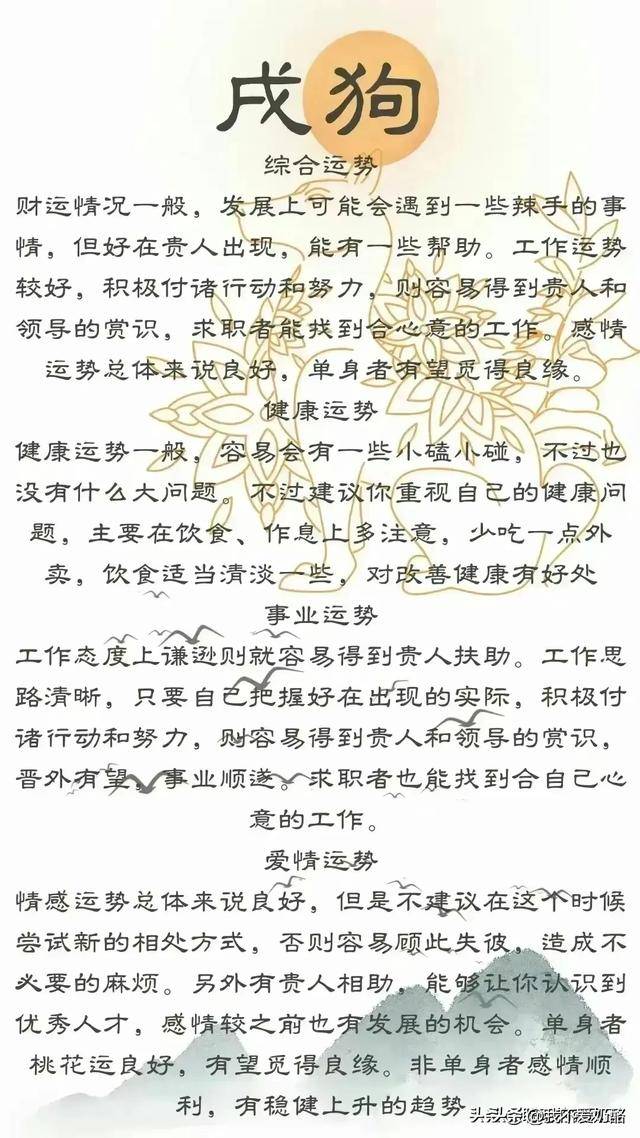 戌狗
综合运势
财运情况一般，发展上可能会遇到一些辣手的事
情，但好在贵人出现，能有一些帮助。工作运势
较好，积极付诸行动和努力，则容易得到贵人和
领导的赏识，求职者能找到合心意的工作。感情
运势总体来说良好，单身者有望觅得良缘。
健康运势
健康运势一般，容易会有一些小磕小碰，不过也
没有什么大问题。不过建议你重视自己的健康问
题，主要在饮食、作息上多注意，少吃一点外
卖，饮食适当清淡一些，对改善健康有好处
事业运势
工作态度上谦逊则就容易得到贵人扶助。工作思
路清晰，只要自己把握好在出现的实际，积极付
诸行动和努力，则容易得到贵人和领导的赏识，
晋外有望，事业顺遂。求职者也能找到合自己心
意的工作。
爱情运势
情感运势总体来说良好，但是不建议在这个时候
尝试新的相处方式，否则容易顾此失彼，造成不
必要的麻烦。另外有贵人相助，能够让你认识到
优秀人才，感情较之前也有发展的机会。单身者
桃花运良好，有望觅得良缘。非单身者感情顺
利，有稳健上升的趋势